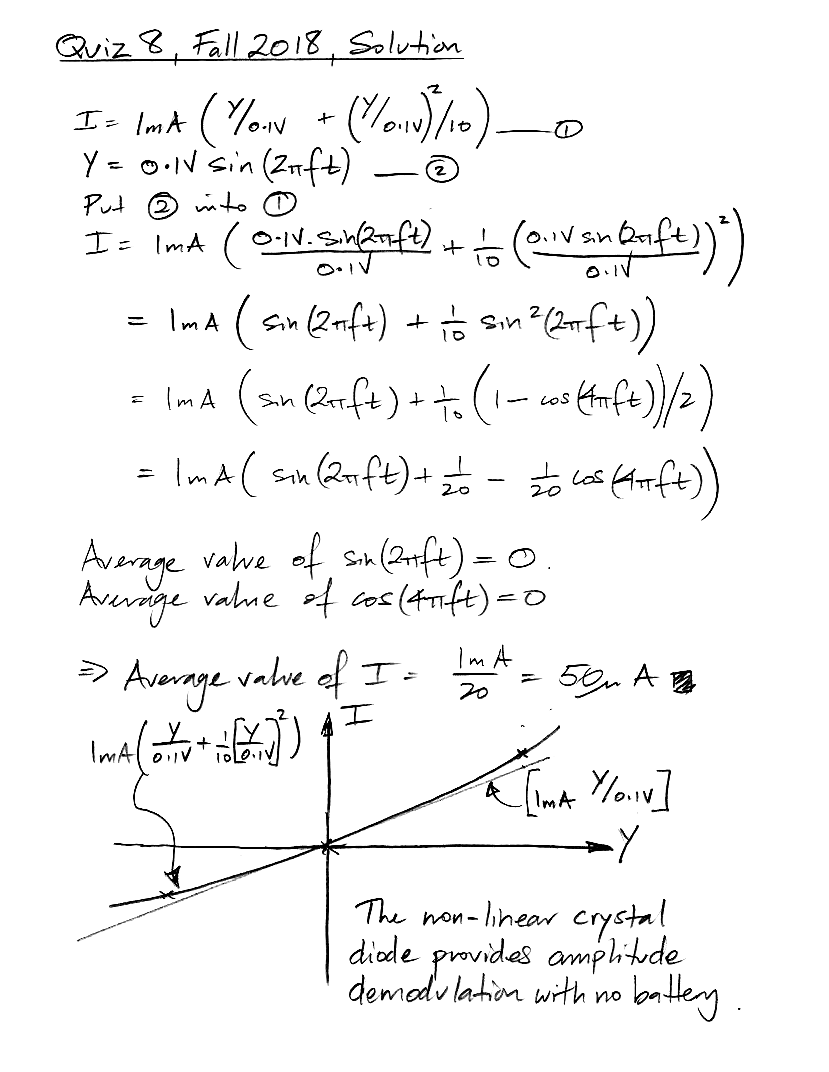 Quiz 8, Fall 2018, Solution
I = 1mA ( Y/0.1V + (Y/0.1V)²/10 ) — ①
Y = 0.1V sin(2πft) — ②
Put ② into ①
I = 1mA ( 0.1V.sin(2πft)/0.1V + 1/10 (0.1V sin(2πft))/0.1V)² )
= 1mA ( sin(2πft) + 1/10 sin²(2πft))
= 1mA ( sin(2πft) + 1/10 (1 - cos(4πft))/2 )
= 1mA ( sin(2πft) + 1/20 - 1/20 cos(4πft))
Average value of sin(2πft) = 0.
Average value of cos(4πft) = 0
⇒ Average value of I = 1mA/20 = 50μA
I
1mA( Y/0.1V + 1/10[Y/0.1V]²)
[1mA Y/0.1V]
Y
The non-linear crystal
diode provides amplitude
demodulation with no battery.